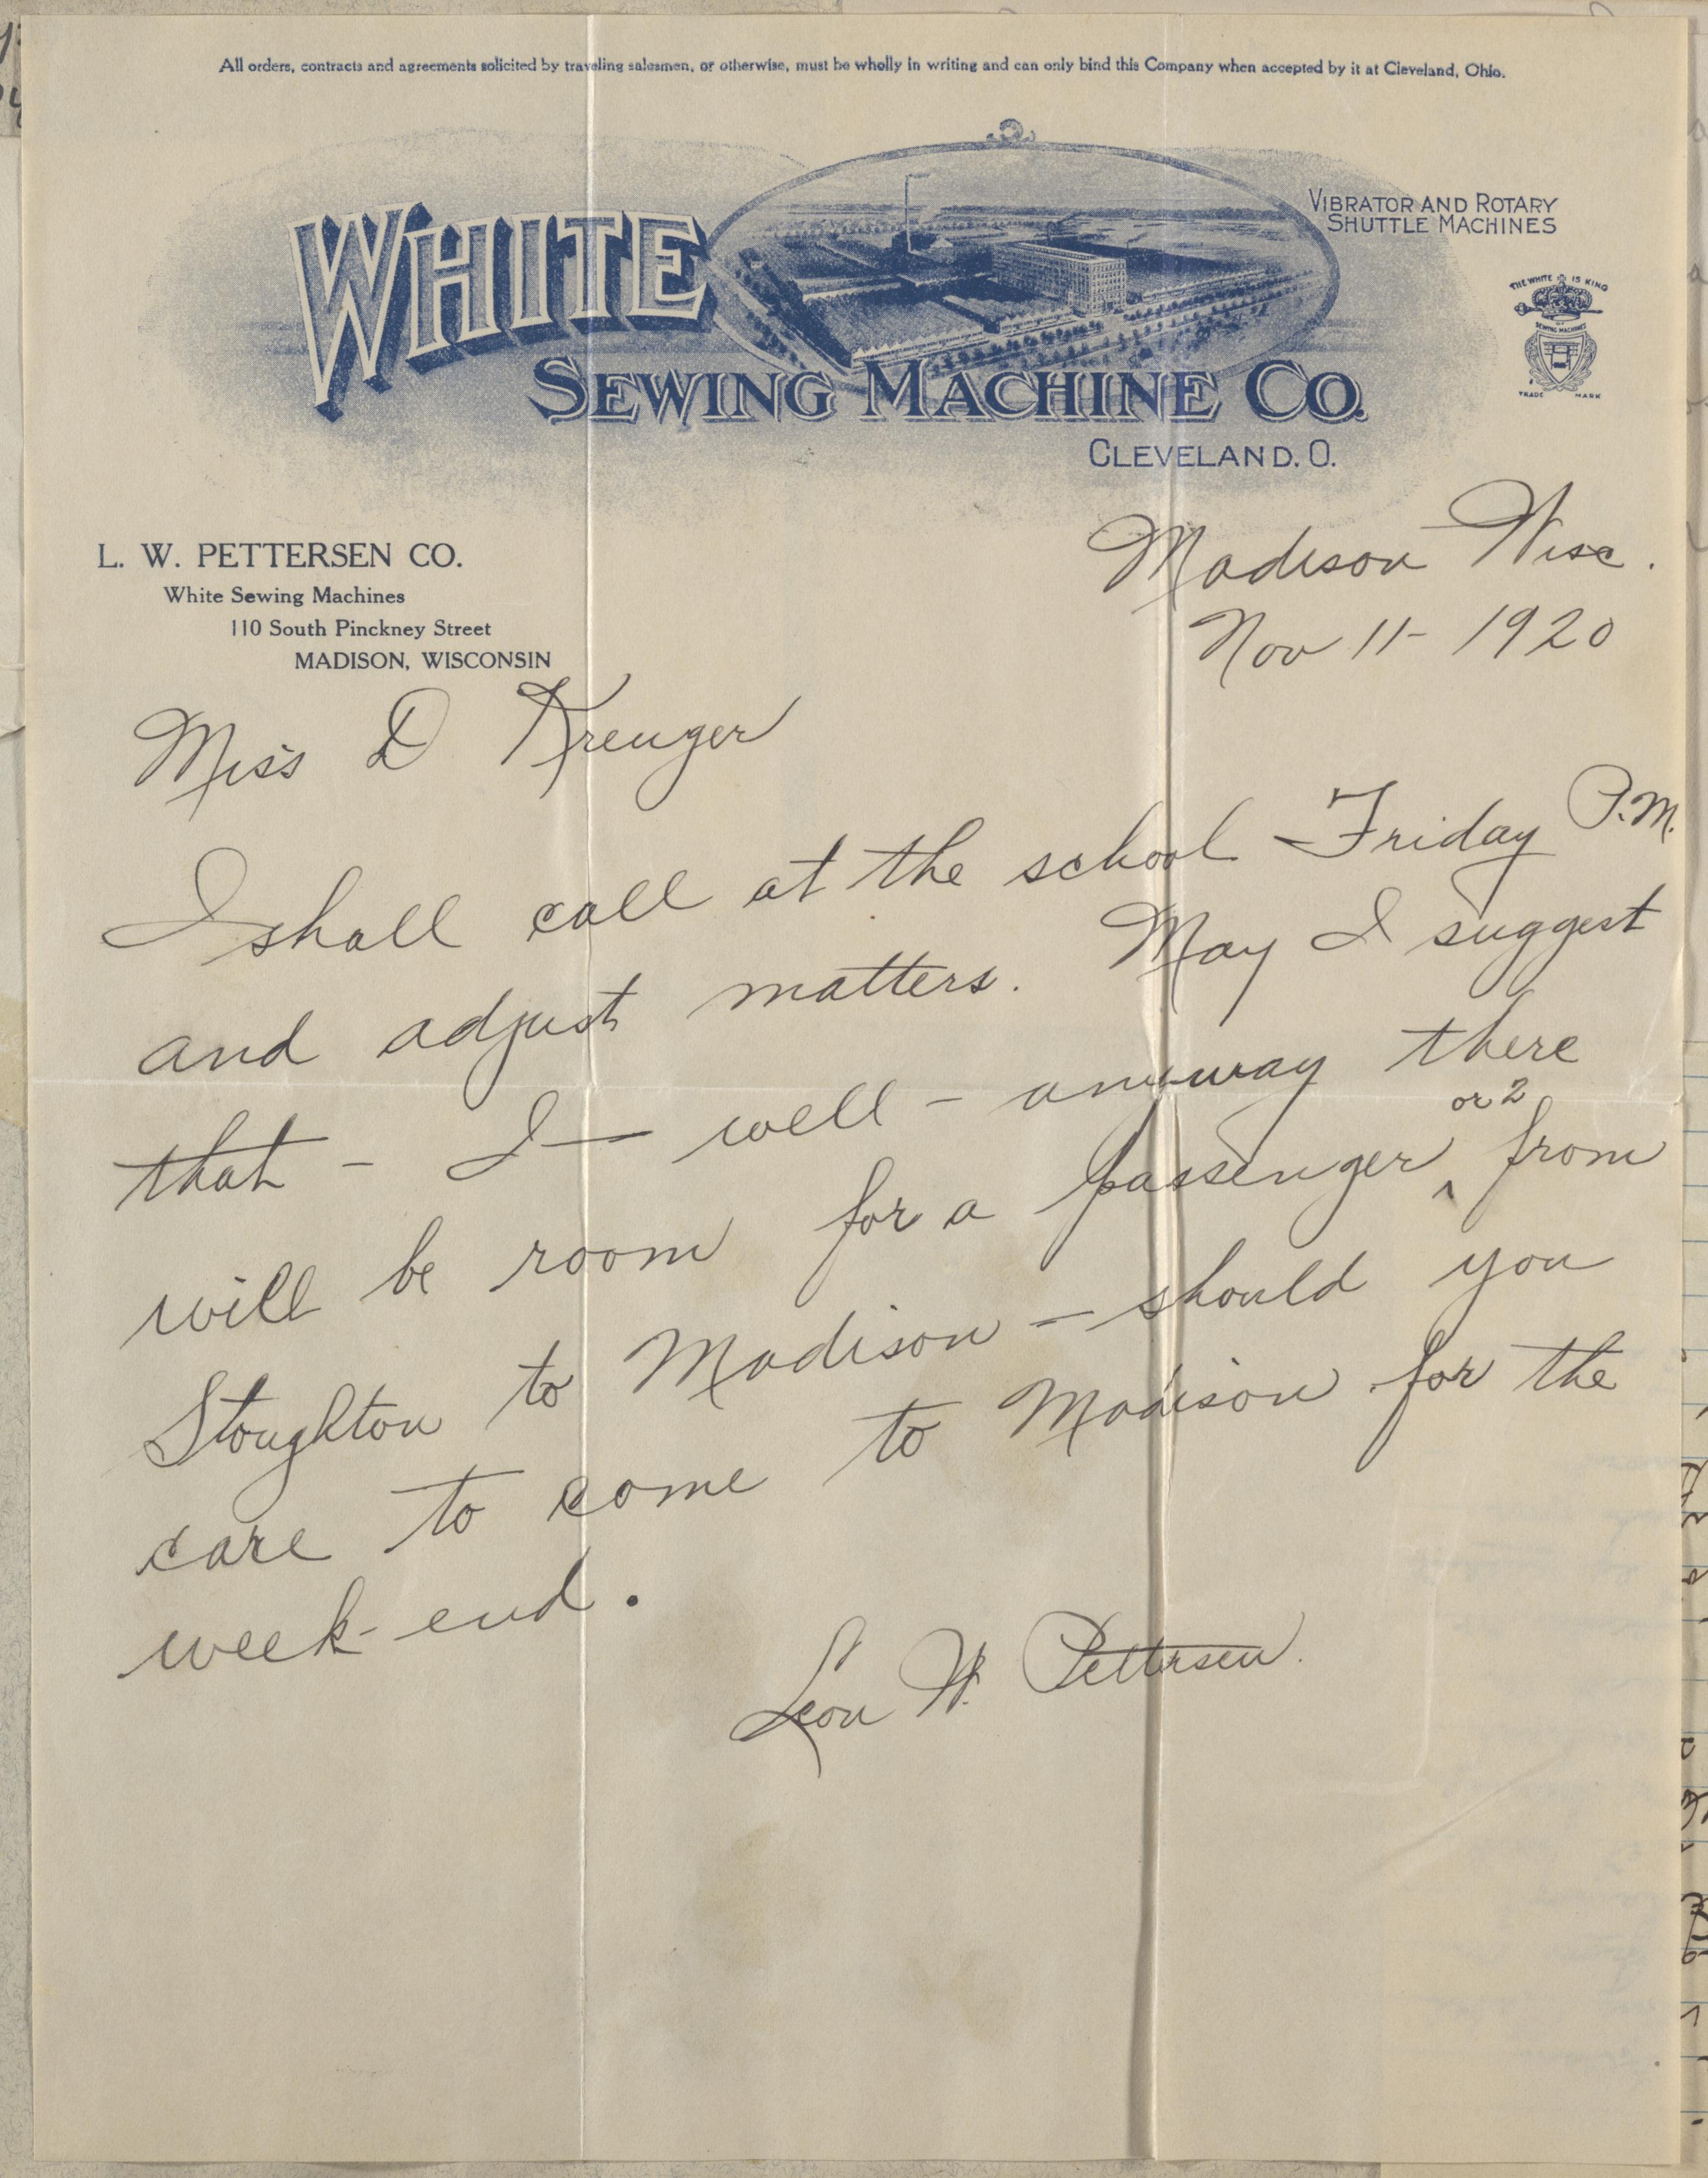 All orders, contracts and agreements solicited by traveling salesmen, or otherwise, must be wholly in writing and can only bind this Company when accepted by it at Cleveland, Ohio.
WHITE
SEWING MACHINE CO.
CLEVELAND. O.
VIBRATOR AND ROTARY
SHUTTLE MACHINES
THE WHITE IS KING
OF
SEWING MACHINES
TRADE MARK
L. W. PETTERSEN CO.
White Sewing Machines
110 South Pinckney Street
MADISON, WISCONSIN
Madison Wisc.
Nov 11- 1920
Miss D Kreuger
I shall call at the school Friday P.M.
and adjust matters. May I suggest
that - I — well - anyway there
will be room for a passenger ^ or 2 from
Stoughton to Madison - should you
care to come to Madison for the
week-end.
Leon W. Pettersen.